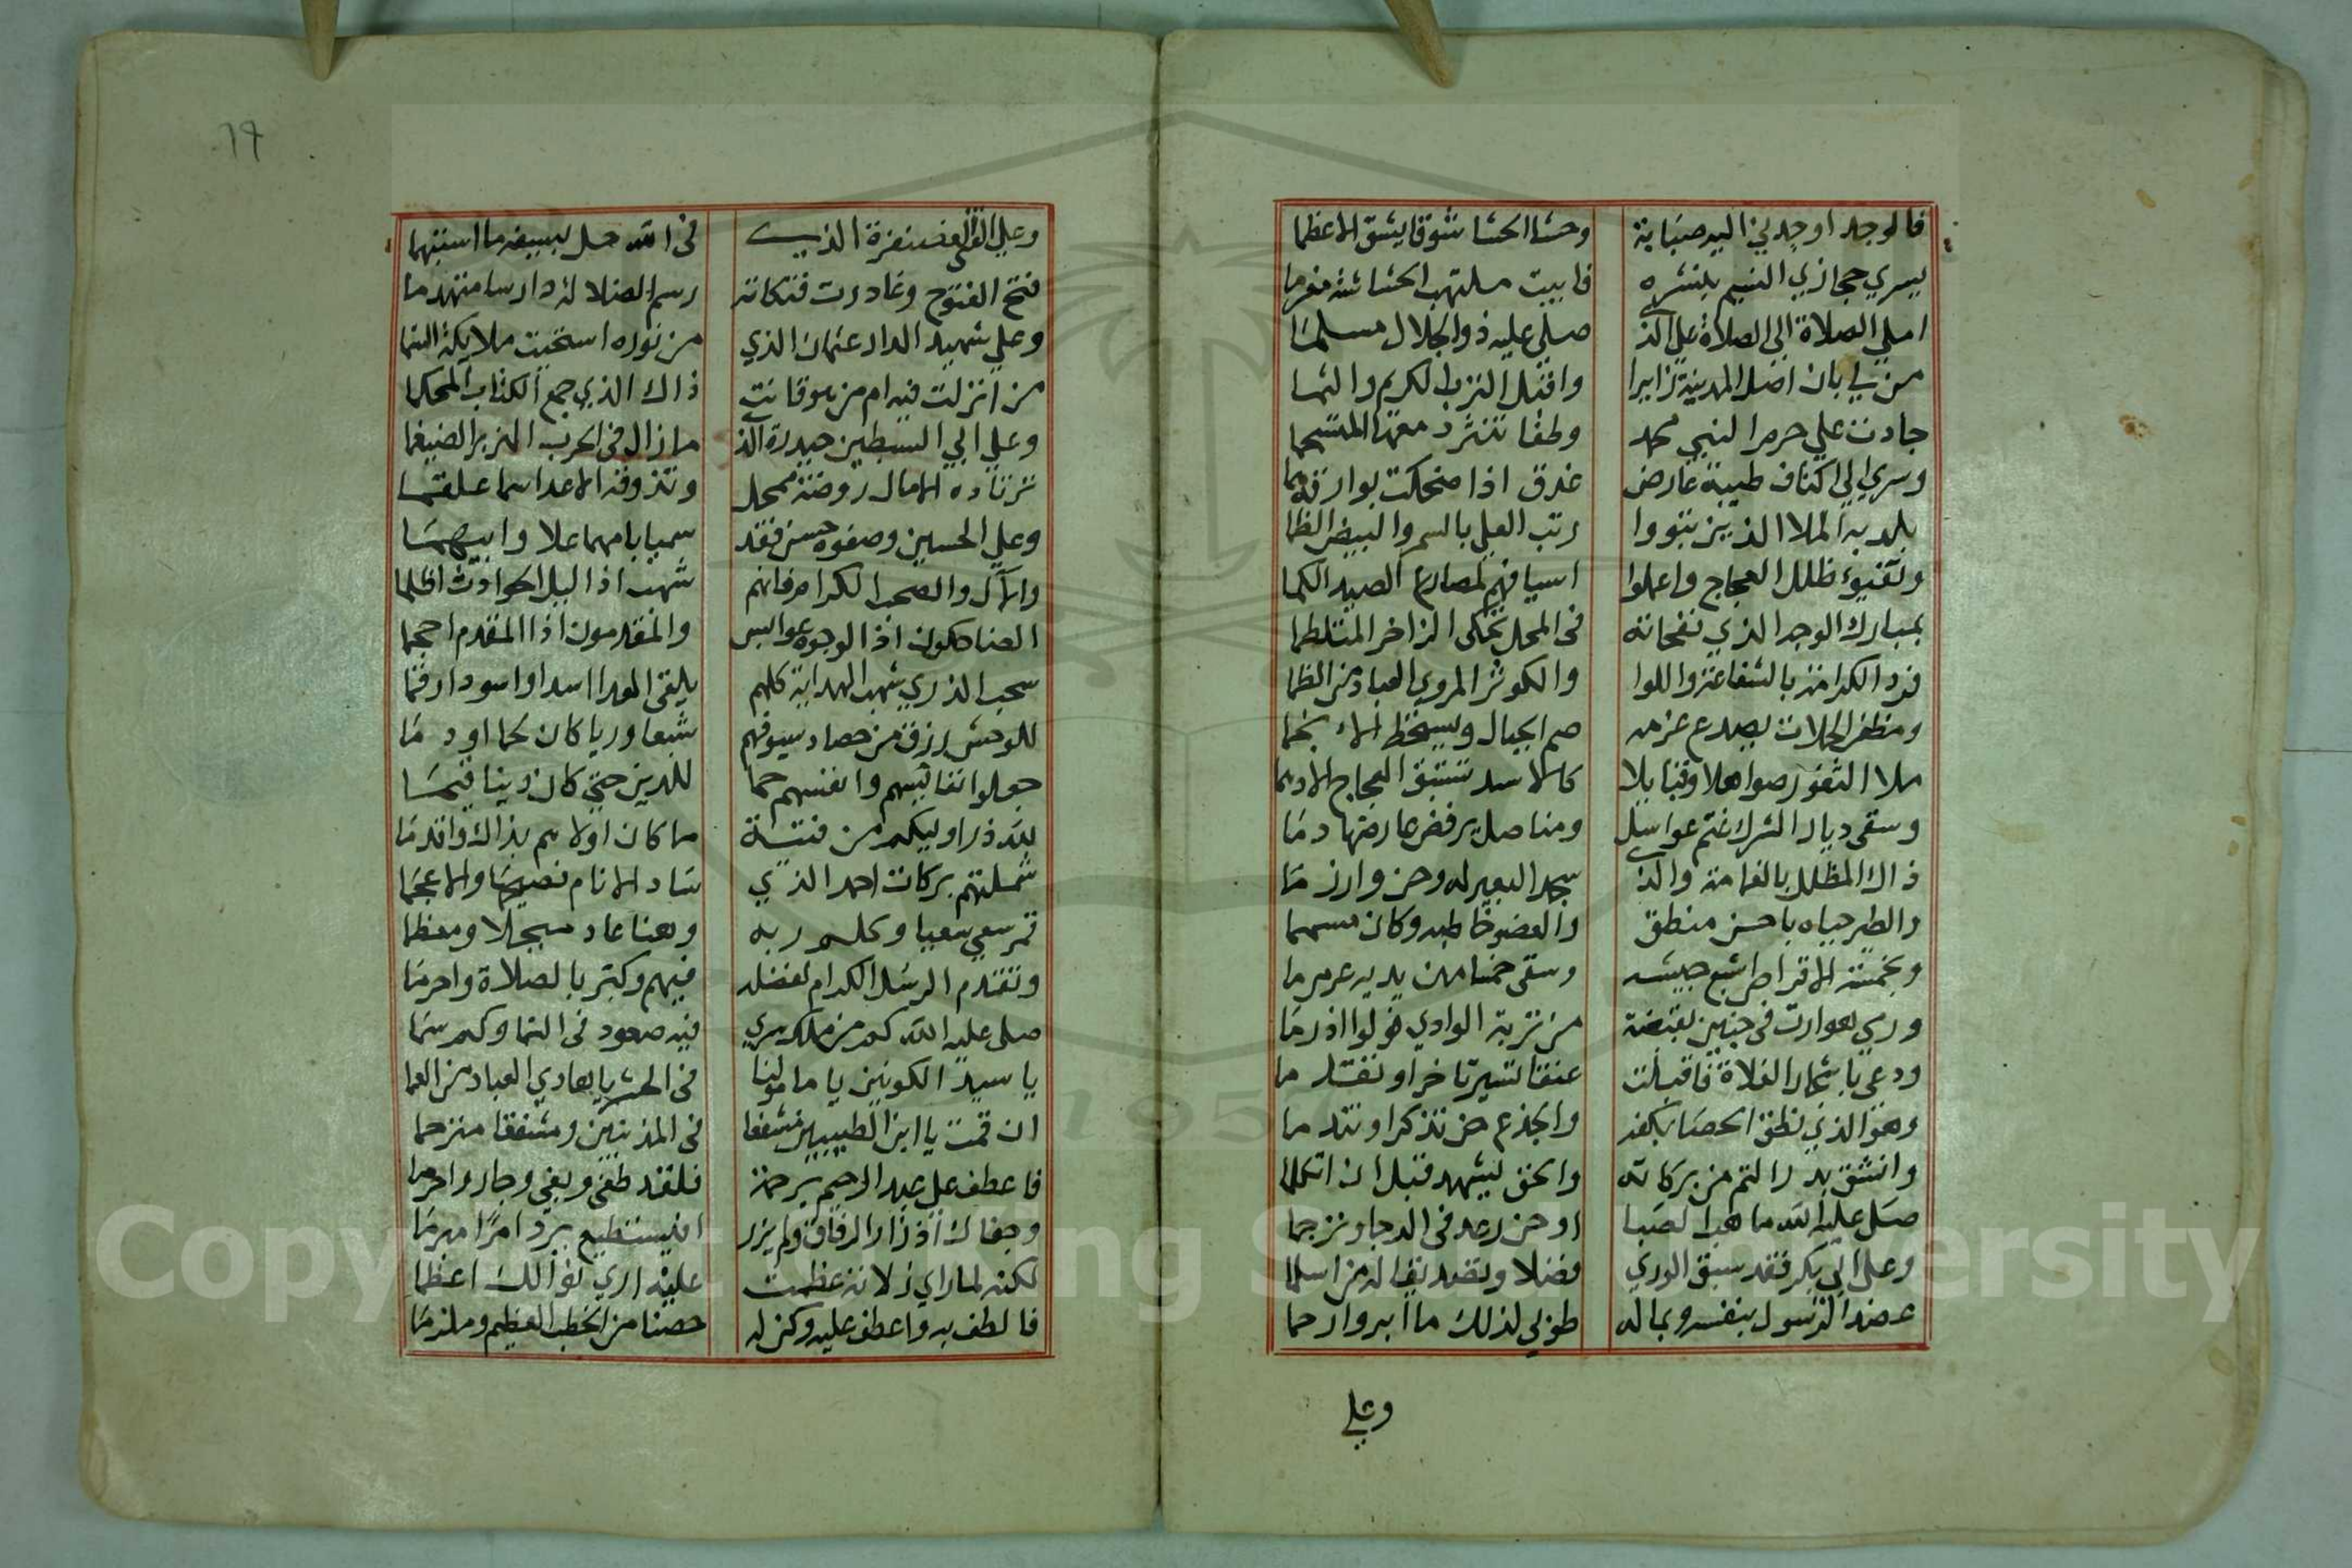 فالوجد اوجدني اليه صبابة وحشا الحشا شوقا يشق الاعظما
يسري حجازي النسيم بنشره فابيت ملتهب الحشاشة مغرما
املي الصلاة الي الصلاة علي الذي صلي عليه ذو الجلال مسلما
من لي بان اصل المدينة زايرا واقبل الترب الكريم والثما
جادت علي حرم النبي محمد
وسري الي اكناف طيبة عارض غدق اذا ضحكت بوارقه
بلد به الملا الذين تبووا رتب العلي بالسمر والبيض الظما
وتفيو ظلل العجاج واعملوا اسيافهم لمصارع الصيد الكما
بمبارك الوجه الذي نفحاته في المحل تحكي الزاخر المتلطما
فرد الكرامة بالشفاعة واللوا والكوثر المروي العباد من الظما
ومظفر الحملات يصدع عزمه صم الجبال
ملا الثغور صواهلا وقنابلا كالاسد تستبق العجاج الادهما
وسقي ديار الشرك غتم عواسل ومناصل يرفض عارضها دما
ذاك المظلل بالغمامة والذي سجد البعير له وحن وارزما
والطير حياه باحسن منطق والعضو خاطبه وكان مسمما
وبخمسة الاقراص اشبع جيشه وسقي خضما من يديه عرمرما
ورمي هوازن في حنين بقبضة من تربة الوادي فولوا اذ رما
ودعي باشجار الفلاة فاقبلت عنقا لتسير تاخرا وتقدما
وهو الذي نطق الحصا بكفه والجذع حن تذكرا وتندما
وانشق بدر التم من بركاته والحق ليشهد قبل ان اتكلما
صلي عليه الله ما هب الصبا او حن رعد في الدجا وترجما
وعلي ابي بكر فقد سبق الوري فضلا وتصديقا له من اسلما
عضد الرسول بنفسه وبماله طوبي لذلك ما ابر وارحما
وعلي
٦٩
وعلي الذي في الله حل بسيفه ما استبهما
فتح الفتوح وغادرت فتكاته رسم الضلالة دارسا متهدما
وعلي شهيد الدار عثمان الذي من نوره استحيت ملايكة السما
من انزلت فيه ام من هو قانت ذاك الذي جمع الكتاب المحكما
وعلي ابي السبطين حيدرة الذي ما زال في الحرب الهزبر الضيغما
ترتاده الامال روضة ممحل وتذوقه الاعدا سما علقما
وعلي الحسين وصفوه حسن فقد سميا بامهما علا وابيهما
والآل والصحب الكرام فانهم شهب اذا ليل الحوادث اظلما
الضاحكون اذا الوجوه عوابس والمقدمون اذا المقدم احجما
سحب الذري شهب الهداية كلهم يلقي العدا اسدا واسود ارقما
للوحش رزق من حصاد سيوفهم شبعا وريا كان لحما او دما
جعلوا نفايسهم وانفسهم حما للدين حتي كان دينا قيما
لله در اوليكم من فتية ما كان اولاهم بذاك واقدما
شملتهم بركات احمد الذي ساد الانام فصيحها والاعجما
قمر سعي سعيا وكلم ربه وهنا عاد مبجلا ومعظما
وتقدم الرسل الكرام لفضله فيهم وكبر بالصلاة واحرما
صلي عليه الله كم من ملك سري فيه صعود في السما وكم سما
يا سيد الكونين يا مامولنا في الحشر يا هادي العباد من العما
ان قمت يا ابن الطيبين مشفعا في المذنبين ومشفقا مترحما
فاعطف علي عبد الرحيم برحمة فلقد طغي وبغي وجار واجرما
وجفاك اذ زار الرفاق ولم يزر افيستطيع يرد امرا مبرما
لكنه لما راي زلاته عظمت عليه اري نوالك اعظما
فالطف به واعطف عليه وكن له حصنا من الخطب العظيم وملزما
Copyright © King Saud University
1957